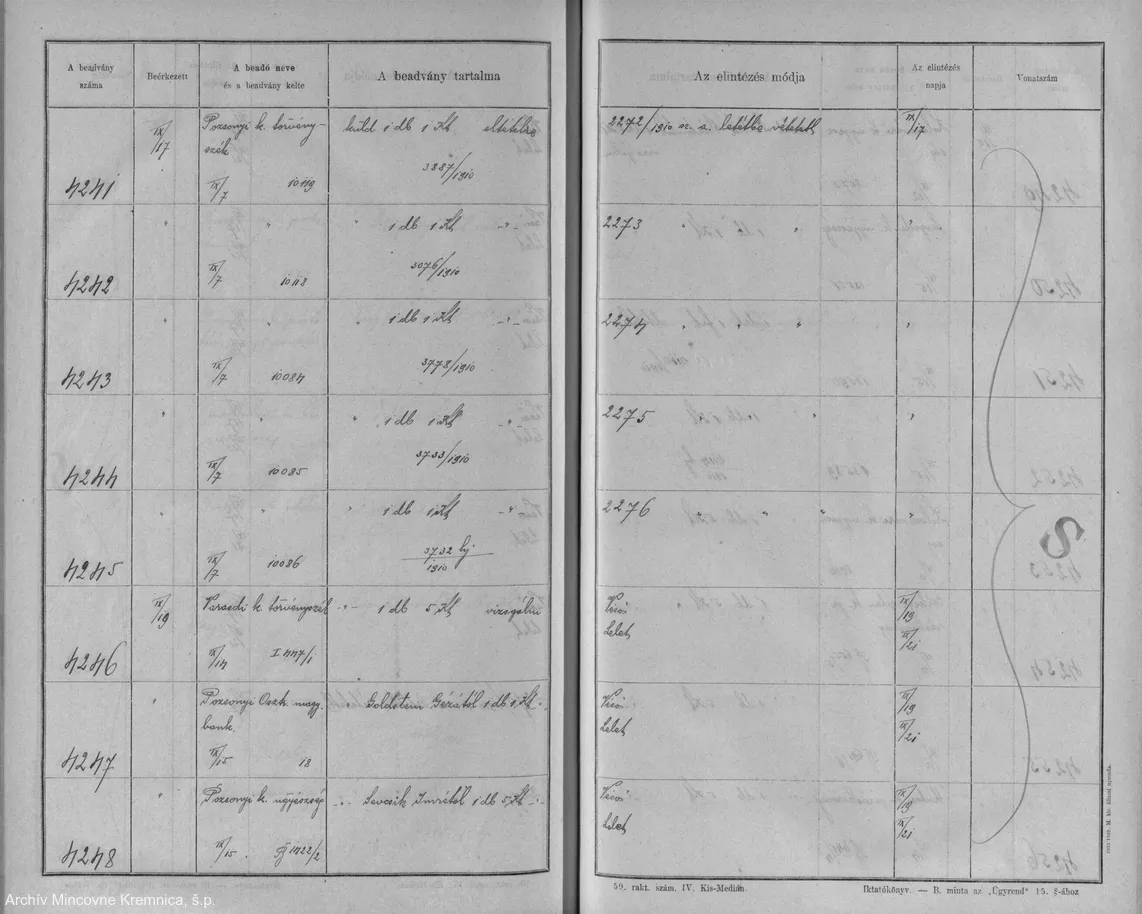 A beadvány száma
Beérkezett
A beadó neve és a beadvány kelte
A beadvány tartalma
Az elintézés módja
Az elintézés napja
Vonatszám
4241
IX/17
Pozsonyi k. törvény-
szék
IX/7 10119
küld 1 db 1 Kt
3887/1910
2272/1910 sz. a. letétbe vétetett
IX/17
4242
"
IX/7 10118
" 1 db 1 Kt -"-
3076/1910
2273 " "
"
4243
"
IX/7 10084
1 db 1 Kt -"-
3778/1910
2274 " " "
"
4244
" "
IX/7 10085
" 1 db 1 Kt -"-
3733/1910
2275 "
"
4245
"
IX/7 10086
" 1 db 1 Kt -"-
3732 bj
1910
2276 " "
"
4246
IX/19
Varasdi k. törvényszék
IX/14 I 447/1
-"- 1 db 5 Kt vizsgálni
Lelet
IX/19
IX/21
4247
"
Pozsonyi Oszt. magy.
bank
IX/15 18
Goldstein Gézától 1 db 1 Kt
Lelet
IX/19
IX/21
4248
"
Pozsonyi k. ügyészség
IX/15. 1422/2
-"- Sevcsik Imrétől 1 db 5 Kt -"-
Lelet
IX/19
IX/21
S
59. rakt. szám. IV. Kis-Medián.
Iktatókönyv. — B. minta az „Ügyrend" 15. §-ához
Archív Mincovne Kremnica, š.p.